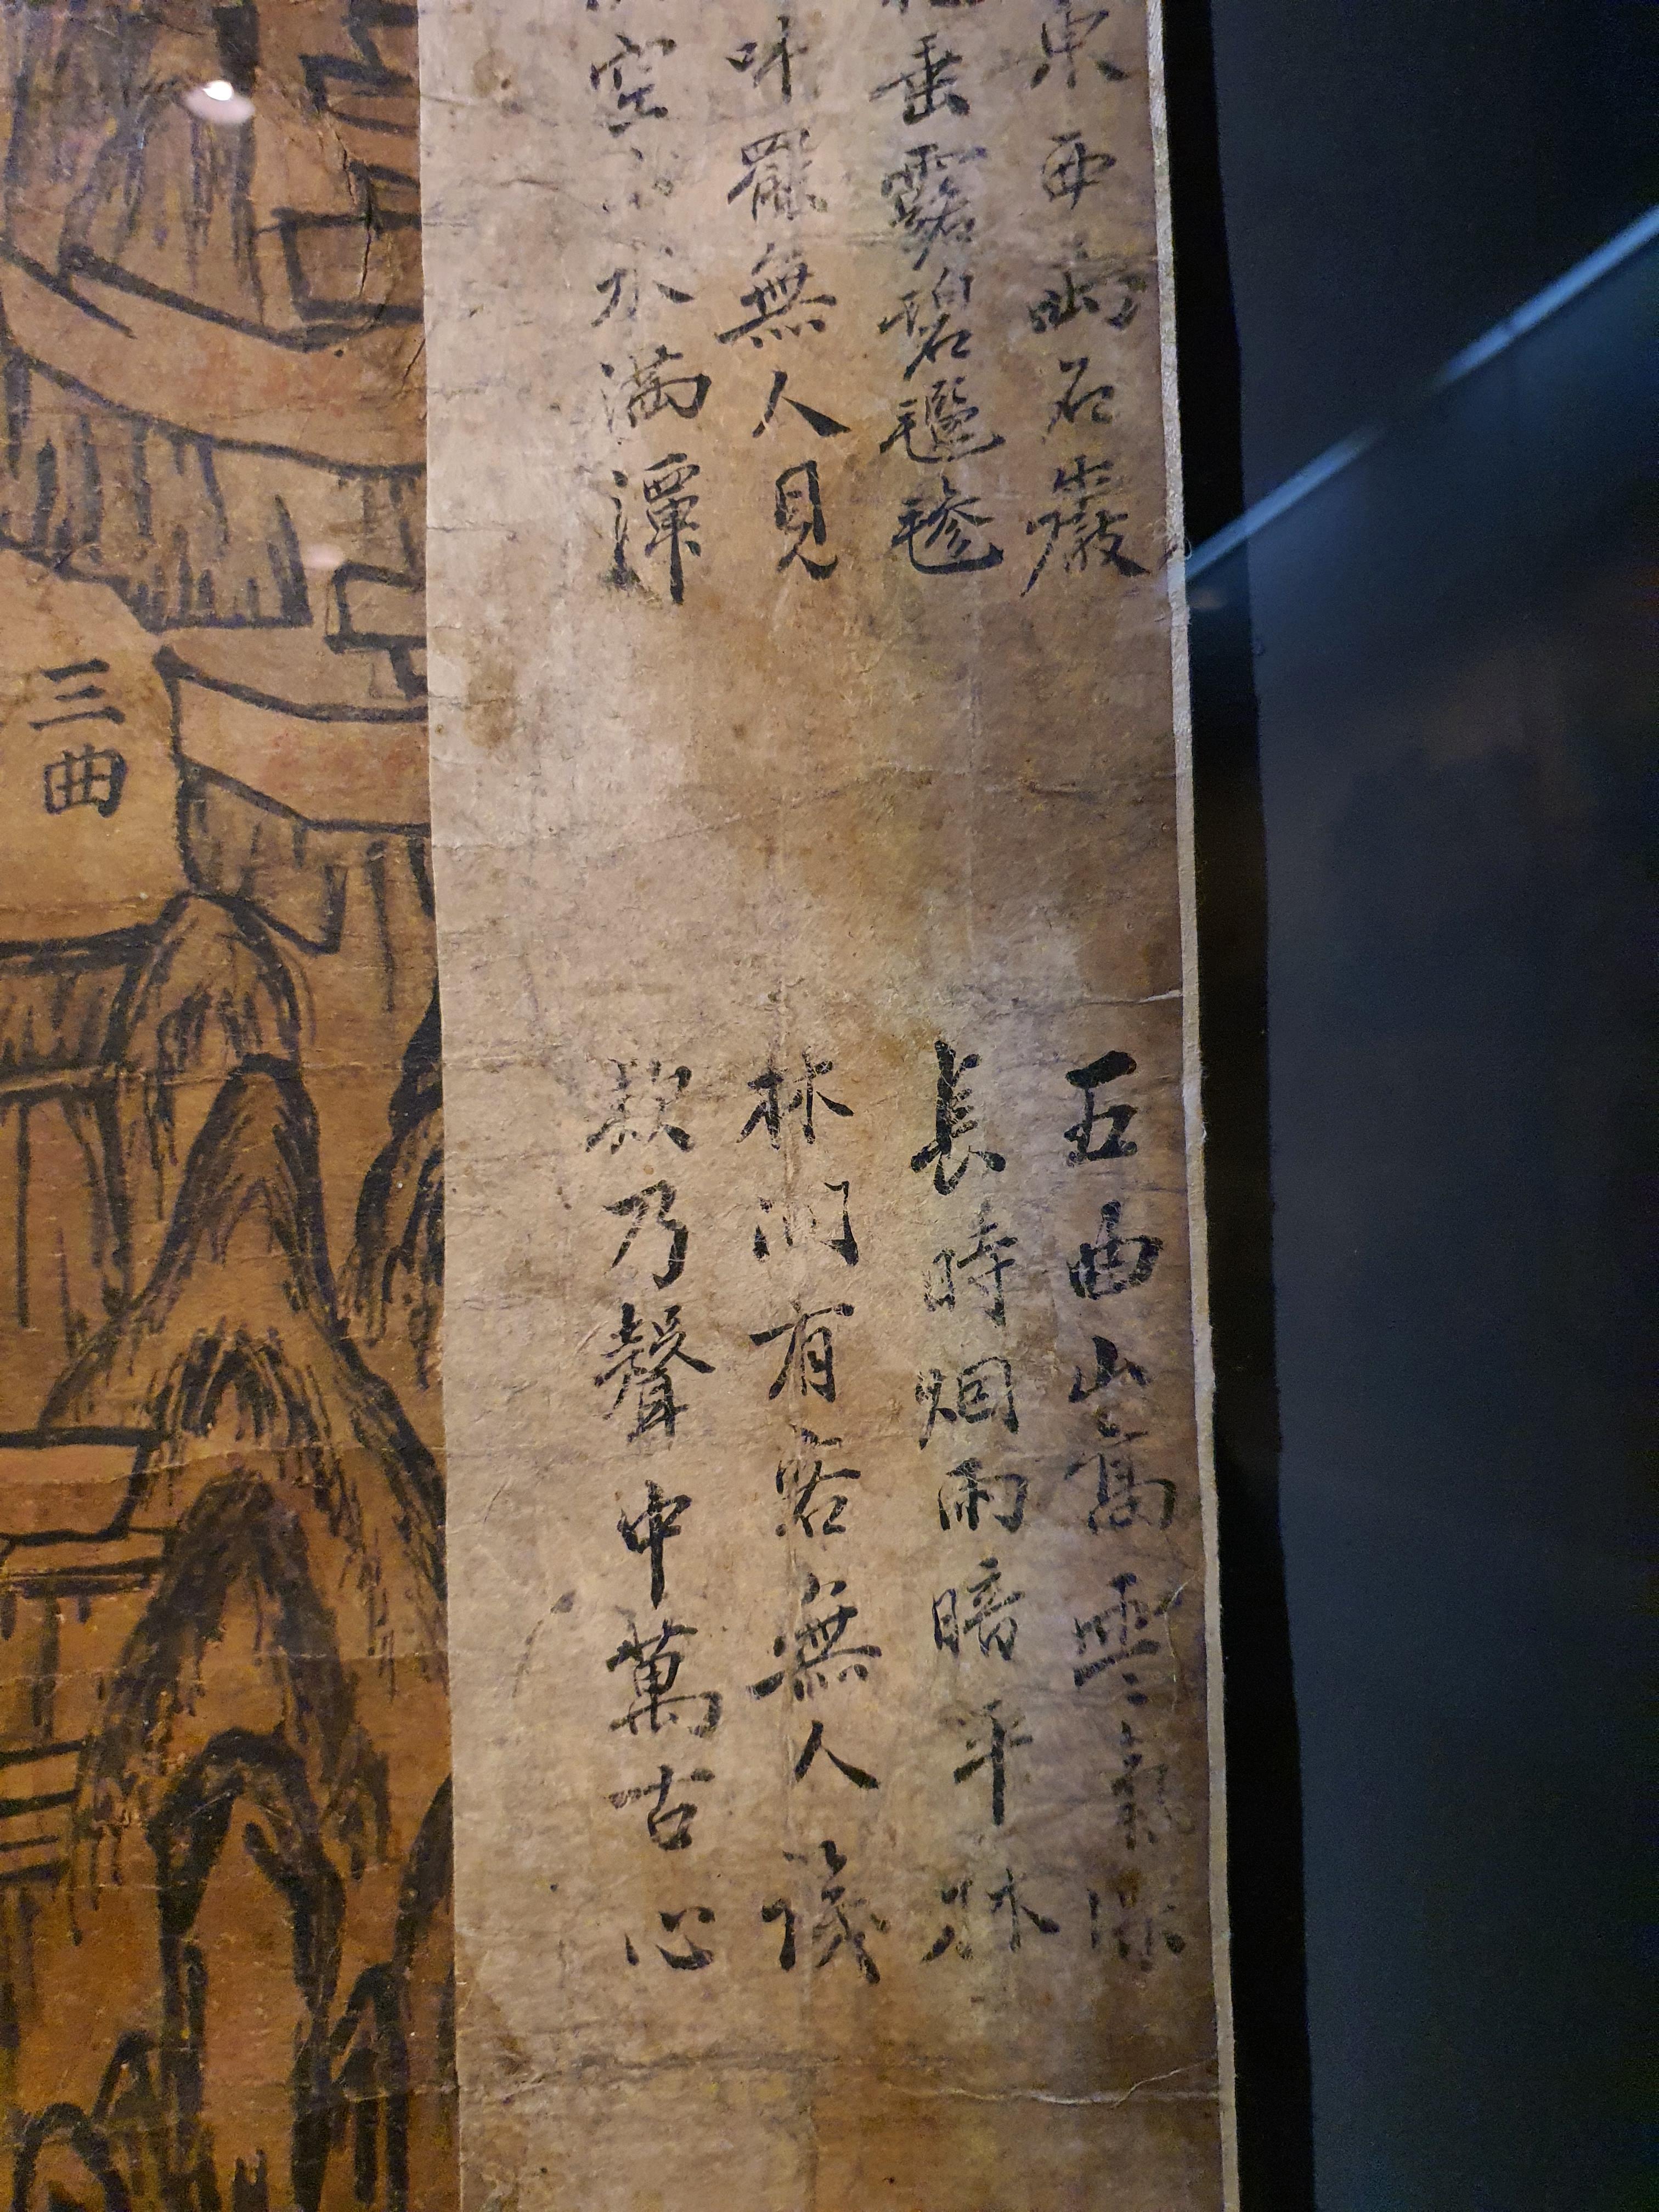 東西兩石巖
垂露碧㲯毿
叫罷無人見
空山水滿潭
五曲山高雲氣深
長時烟雨暗平林
林間有客無人識
欸乃聲中萬古心
三曲